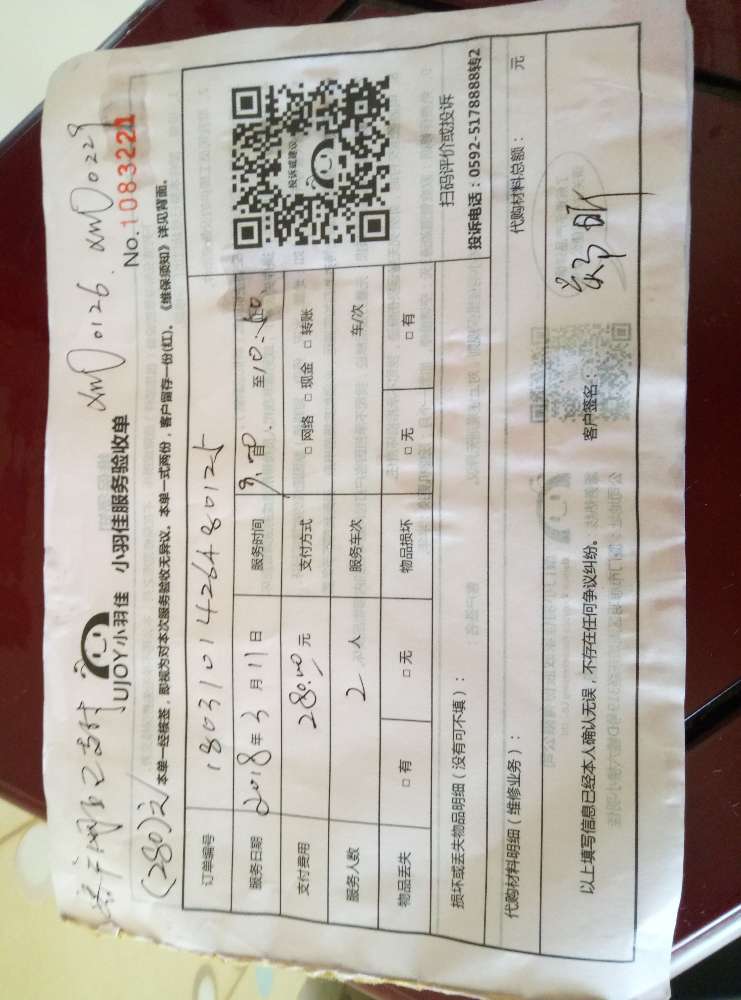 (280)元
XMD0126. XMD0229
UJOY小羽佳 小羽佳服务验收单
No.1083221
本单一经核签，即视为对本次服务验收无异议。本单一式两份，客户留存一份(红)。《维保须知》详见背面。
订单编号
服务日期 2018年3月11日 服务时间 至10:00
支付费用 280.00元 支付方式 □网络 □现金 □转账
服务人数 2人 服务车次 车/次
物品丢失 □有 □无 物品损坏 □无 □有
投诉或建议
扫码评价或投诉
投诉电话：0592-5178888转2
损坏或丢失物品明细（没有可不填）：
代购材料明细（维修业务）： 代购材料总额： 元
以上填写信息已经本人确认无误，不存在任何争议纠纷。 客户签名：